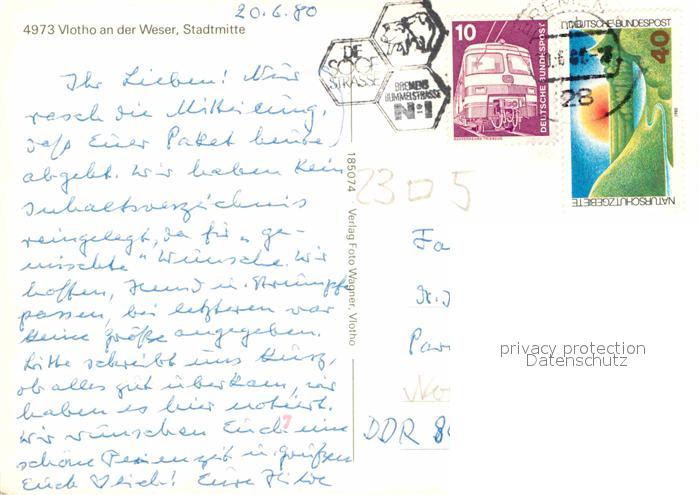 20.6.80
4973 Vlotho an der Weser, Stadtmitte
Ihr Lieben! Nur
rasch die Mitteilung,
daß Euer Paket heute
abgeht. Wir haben kein
Inhaltsverzeichnis
reingelegt, da für „ge-
mischte" Wünsche. Wir
hoffen, Hemd u. Strümpfe
passen, bei letzteren war
keine Größe angegeben.
Bitte schreibt uns kurz,
ob alles gut überkam, wir
haben es hier notiert.
Wir wünschen Euch eine
schöne Ferienzeit u. grüßen
Euch ♡lich! Eure
7
185074 Verlag Foto Wagner, Vlotho
DIE
SÖGE
STRASSE
BREMENS
BUMMELSTRASSE
N:1
10
DEUTSCHE BUNDESPOST
BREMEN
28
DEUTSCHE BUNDESPOST
40
NATURSCHUTZGEBIETE
1980
23 5
DDR
privacy protection
Datenschutz